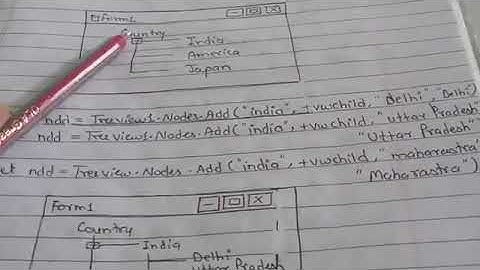 Form1
Country
India
America
Japan
ndd = Treeview1.Nodes.Add("india", tvwchild, "Delhi", "Delhi)
ndd = Treeview1.Nodes.Add("india", tvwchild, "Uttar Pradesh"
"Uttar Pradesh"
et ndd = Treeview.Nodes.Add("india", tvwchild, "maharastra"
"Maharastra")
Form1
Country
India
Delhi
Uttar Pradesh